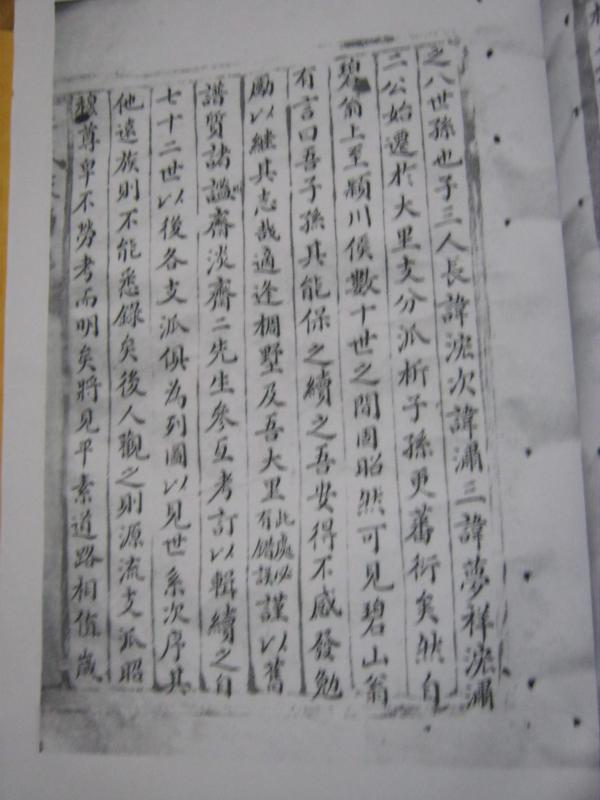 之八世孫也子三人長諱浤次諱潚三諱夢祥浤潚
二公始遷於大里支分派析子孫更蕃衍矣然自
碧翁上至潁川侯數十世之間固昭然可見碧山翁
有言曰吾子孫其能保之續之吾安得不感發勉
勵以继其志哉適逢棡墅及吾大里此處必有錯誤謹以舊
譜質諸謐齋淡齋二先生參互考訂以輯續之自
七十二世以後各支派俱為列圖以見世系次序其
他遠族則不能悉錄矣後人觀之則源流支派昭
穆尊卑不勞考而明矣將見平素道路相值歲